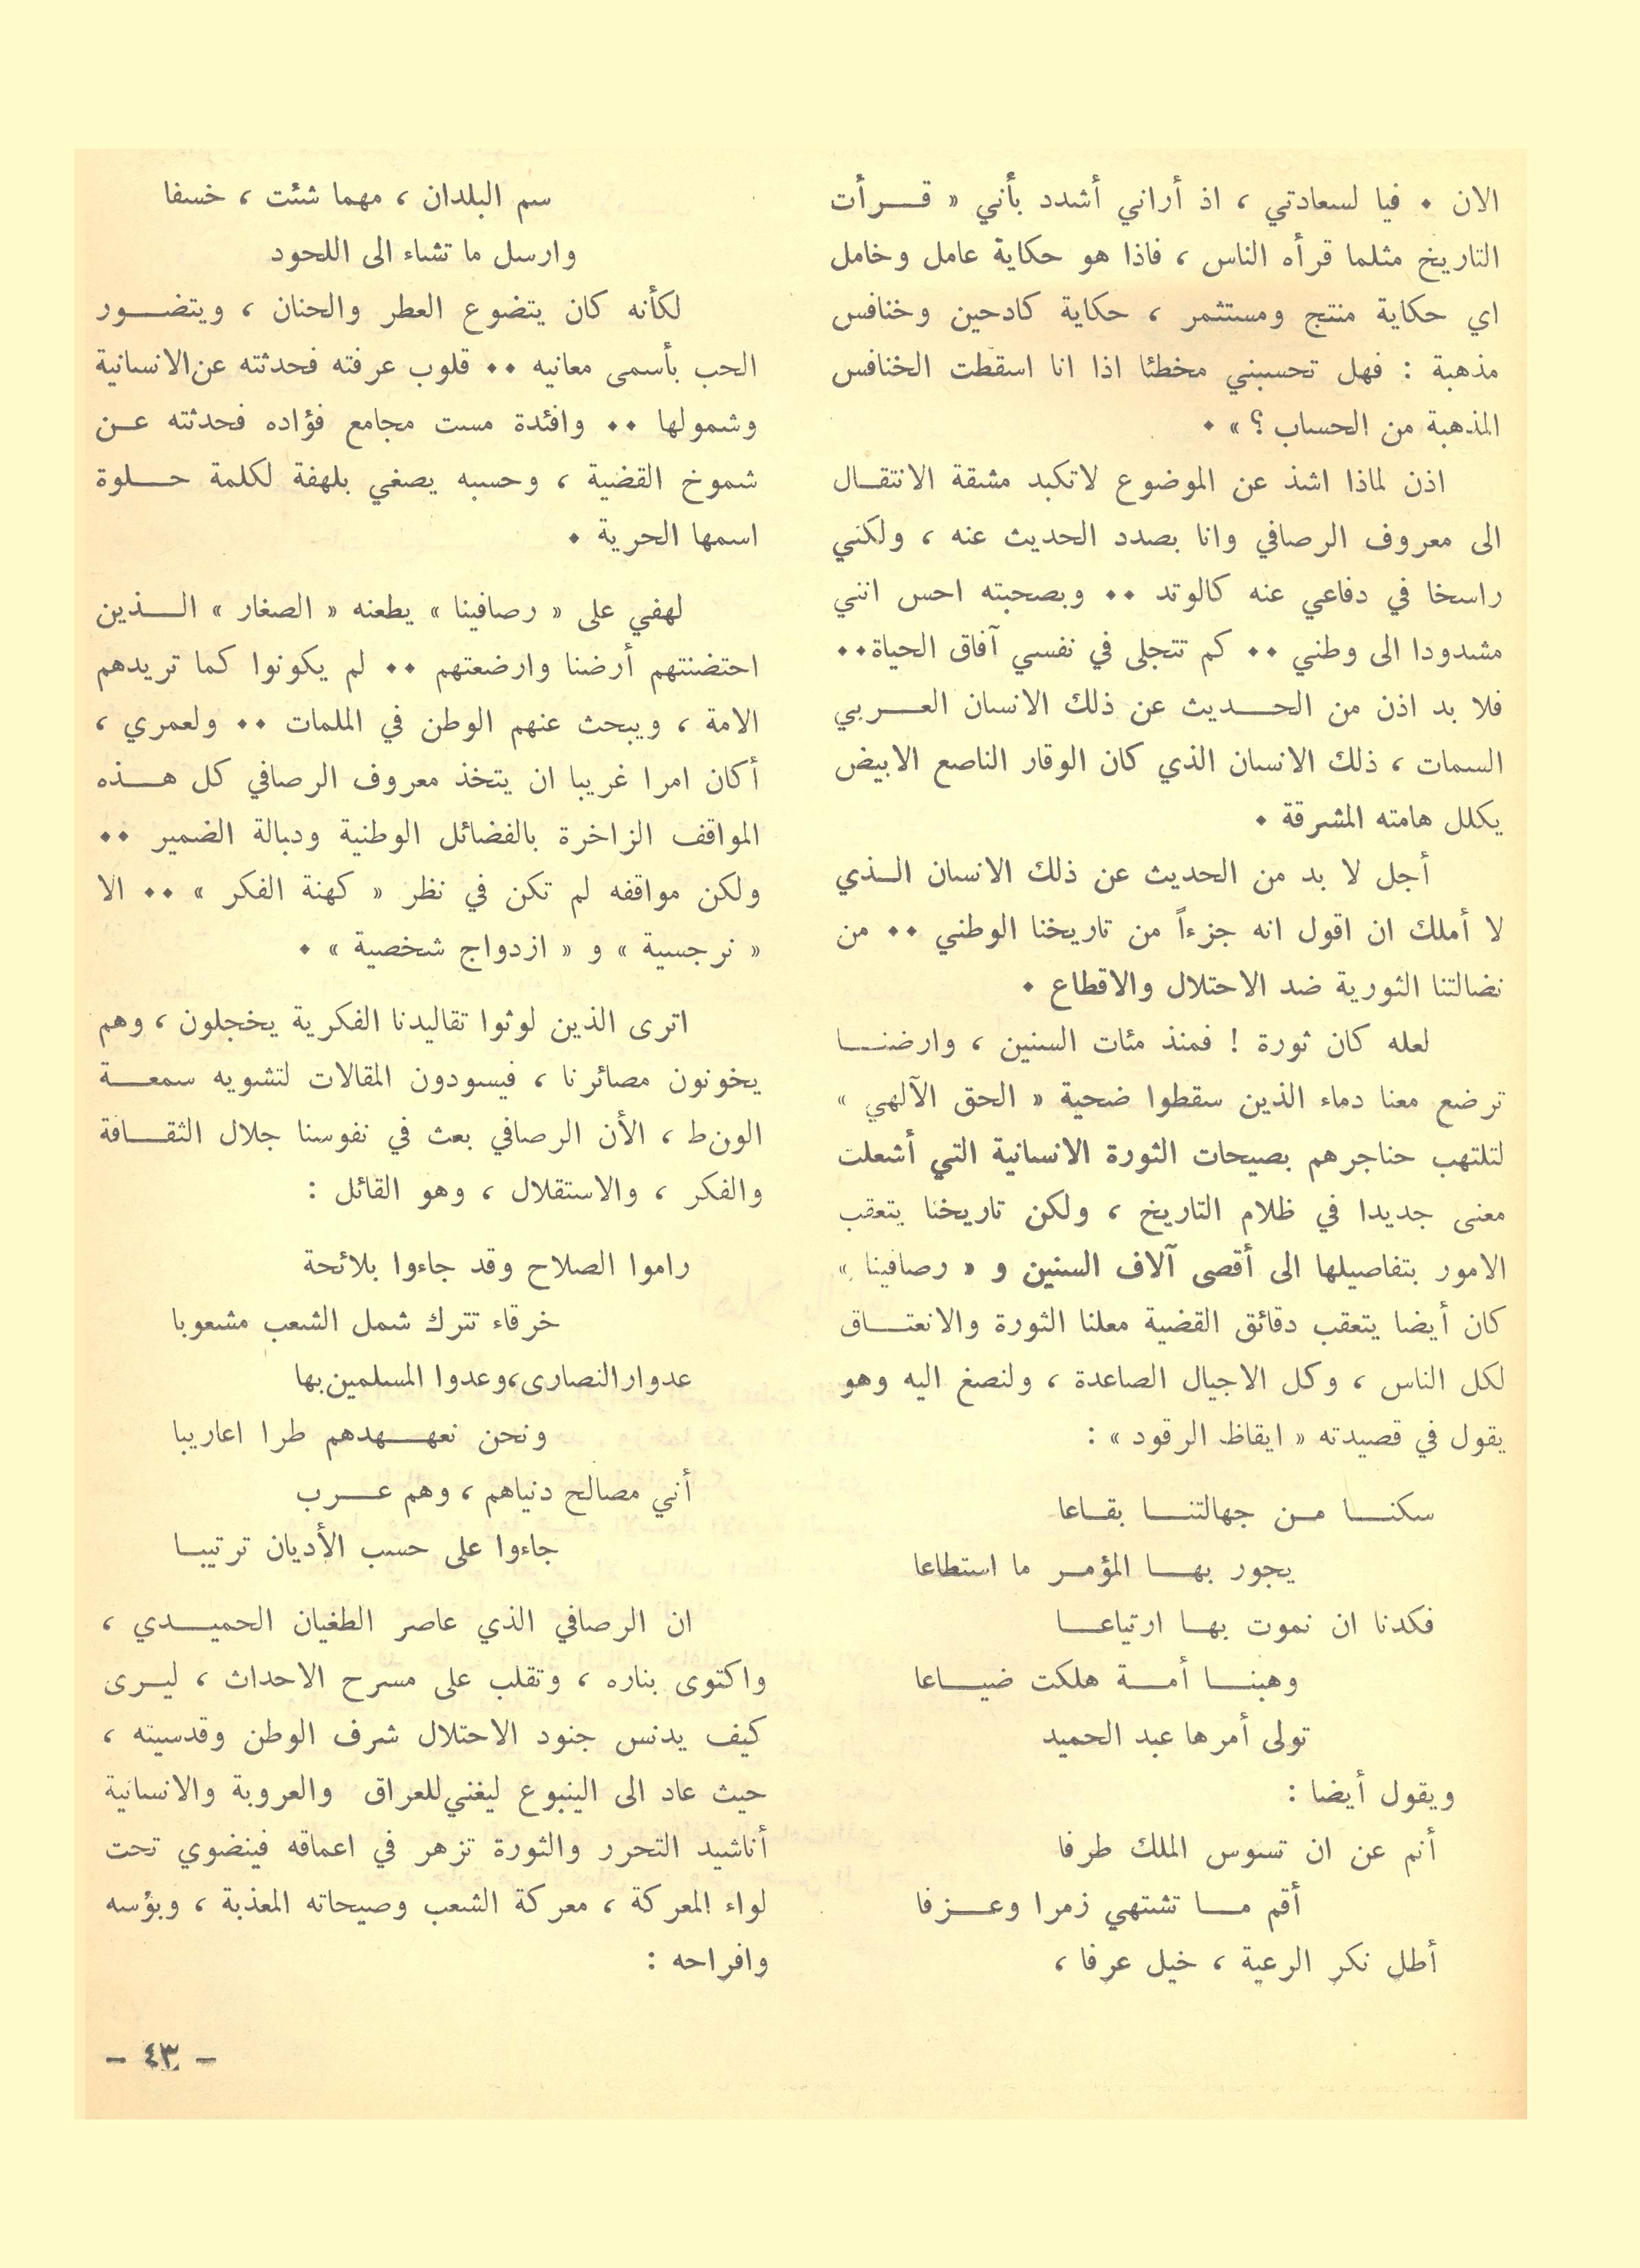 الان . فيا لسعادتي ، اذ أراني أشدد بأني « قــرأت
التاريخ مثلما قرأه الناس ، فاذا هو حكاية عامل وخامل
اي حكاية منتج ومستثمر ، حكاية كادحين وخنافس
مذهبة : فهل تحسبني مخطئا اذا انا اسقطت الخنافس
المذهبة من الحساب ؟ » .
اذن لماذا اشذ عن الموضوع لاتكبد مشقة الانتقـال
الى معروف الرصافي وانا بصدد الحديث عنه ، ولكني
راسخا في دفاعي عنه كالوتد .. وبصحبته احس انني
مشدودا الى وطني .. كم تتجلى في نفسي آفاق الحياة ..
فلا بد اذن من الحـــديث عن ذلك الانسان العــربي
السمات ، ذلك الانسان الذي كان الوقار الناصع الابيض
يكلل هامته المشرقة .
أجل لا بد من الحديث عن ذلك الانسان الـذي
لا أملك ان اقول انه جزءاً من تاريخنا الوطني .. من
نضالتنا الثورية ضد الاحتلال والاقطاع .
لعله كان ثورة ! فمنذ مئات السنين ، وارضنــا
ترضع معنا دماء الذين سقطوا ضحية « الحق الآلهي »
لتلتهب حناجرهم بصيحات الثورة الانسانية التي أشعلت
معنى جديدا في ظلام التاريخ ، ولكن تاريخنا يتعقب
الامور بتفاصيلها الى أقصى آلاف السنين و « رصافينا »
كان أيضا يتعقب دقائق القضية معلنا الثورة والانعتــاق
لكل الناس ، وكل الاجيال الصاعدة ، ولنصغ اليه وهو
يقول في قصيدته « ايقاظ الرقود » :
سكنــا مـن جهالتنــا بقـاعا
يجور بهــا المؤمـر ما استطاعا
فكدنا ان نموت بهـا ارتياعــا
وهبنــا أمــة هلكت ضيــاعا
تولى أمرها عبد الحميد
ويقول أيضا :
أنم عن ان تسوس الملك طرفا
أقم مــا تشتهي زمرا وعــزفا
أطل نكر الرعية ، خيل عرفا ،
سم البلدان ، مهما شئت ، خسفا
وارسل ما تشاء الى اللحود
لكأنه كان يتضوع العطر والحنان ، ويتضــور
الحب بأسمى معانيه .. قلوب عرفته فحدثته عن الانسانية
وشمولها .. وافئدة مست مجامع فؤاده فحدثته عـن
شموخ القضية ، وحسبه يصغي بلهفة لكلمة حــلوة
اسمها الحرية .
لهفي على « رصافينا » يطعنه « الصغار » الــذين
احتضنتهم أرضنا وارضعتهم .. لم يكونوا كما تريدهم
الامة ، ويبحث عنهم الوطن في الملمات .. ولعمري ،
أكان امرا غريبا ان يتخذ معروف الرصافي كل هــذه
المواقف الزاخرة بالفضائل الوطنية ودبالة الضمير ..
ولكن مواقفه لم تكن في نظر « كهنة الفكر » .. الا
« نرجسية » و « ازدواج شخصية » .
اترى الذين لوثوا تقاليدنا الفكرية يخجلون ، وهم
يخونون مصائرنا ، فيسودون المقالات لتشويه سمعــة
الون‌ط ، الأن الرصافي بعث في نفوسنا جلال الثقــافة
والفكر ، والاستقلال ، وهو القائل :
راموا الصلاح وقد جاءوا بلائحة
خرقاء تترك شمل الشعب مشعوبا
عدوار النصارى، وعدوا المسلمين بها
ونحن نعهــدهم طرا اعاريبا
أني مصالح دنياهم ، وهم عــرب
جاءوا على حسب الأديان ترتيبـا
ان الرصافي الذي عاصر الطغيان الحميــدي ،
واكتوى بناره ، وتقلب على مسرح الاحداث ، ليـرى
كيف يدنس جنود الاحتلال شرف الوطن وقدسيته ،
حيث عاد الى الينبوع ليغني للعراق والعروبة والانسانية
أناشيد التحرر والثورة تزهر في اعماقه فينضوي تحت
لواء المعركة ، معركة الشعب وصيحاته المعذبة ، وبؤسه
وافراحه :
– ٤٣ –